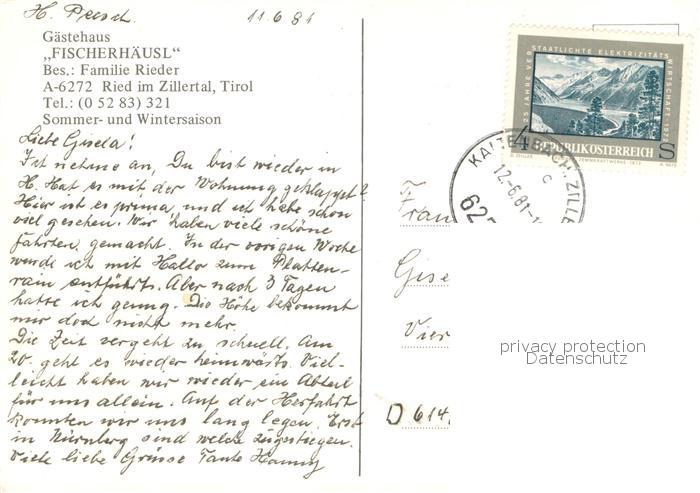 H. Persch. 11.6.81
Gästehaus
„FISCHERHÄUSL"
Bes.: Familie Rieder
A-6272 Ried im Zillertal, Tirol
Tel.: (0 52 83) 321
Sommer- und Wintersaison
Liebe Gisela!
Ich nehme an, Du bist wieder in
H. Hat es mit der Wohnung geklappt?
Hier ist es prima und ich habe schon
viel gesehen. Wir haben viele schöne
Fahrten gemacht. In der vorigen Woche
wurde ich mit Hallo zum Platten-
rain entführt. Aber nach 3 Tagen
hatte ich genug. Die Höhe bekommt
mir doch nicht mehr.
Die Zeit vergeht zu schnell. Am
20. geht es wieder heimwärts. Viel-
leicht haben wir wieder ein Abteil
für uns allein. Auf der Herfahrt
konnten wir uns lang legen. Erst
in Nürnberg sind welche zugestiegen.
Viele liebe Grüsse Tante Hanny
25 JAHRE VERSTAATLICHTE ELEKTRIZITÄTSWIRTSCHAFT 1972
4 REPUBLIK ÖSTERREICH S
KALTENBACH, ZILLE
12.-6.81-1
c
62
Frau
Gise
Vier
D 614
privacy protection
Datenschutz